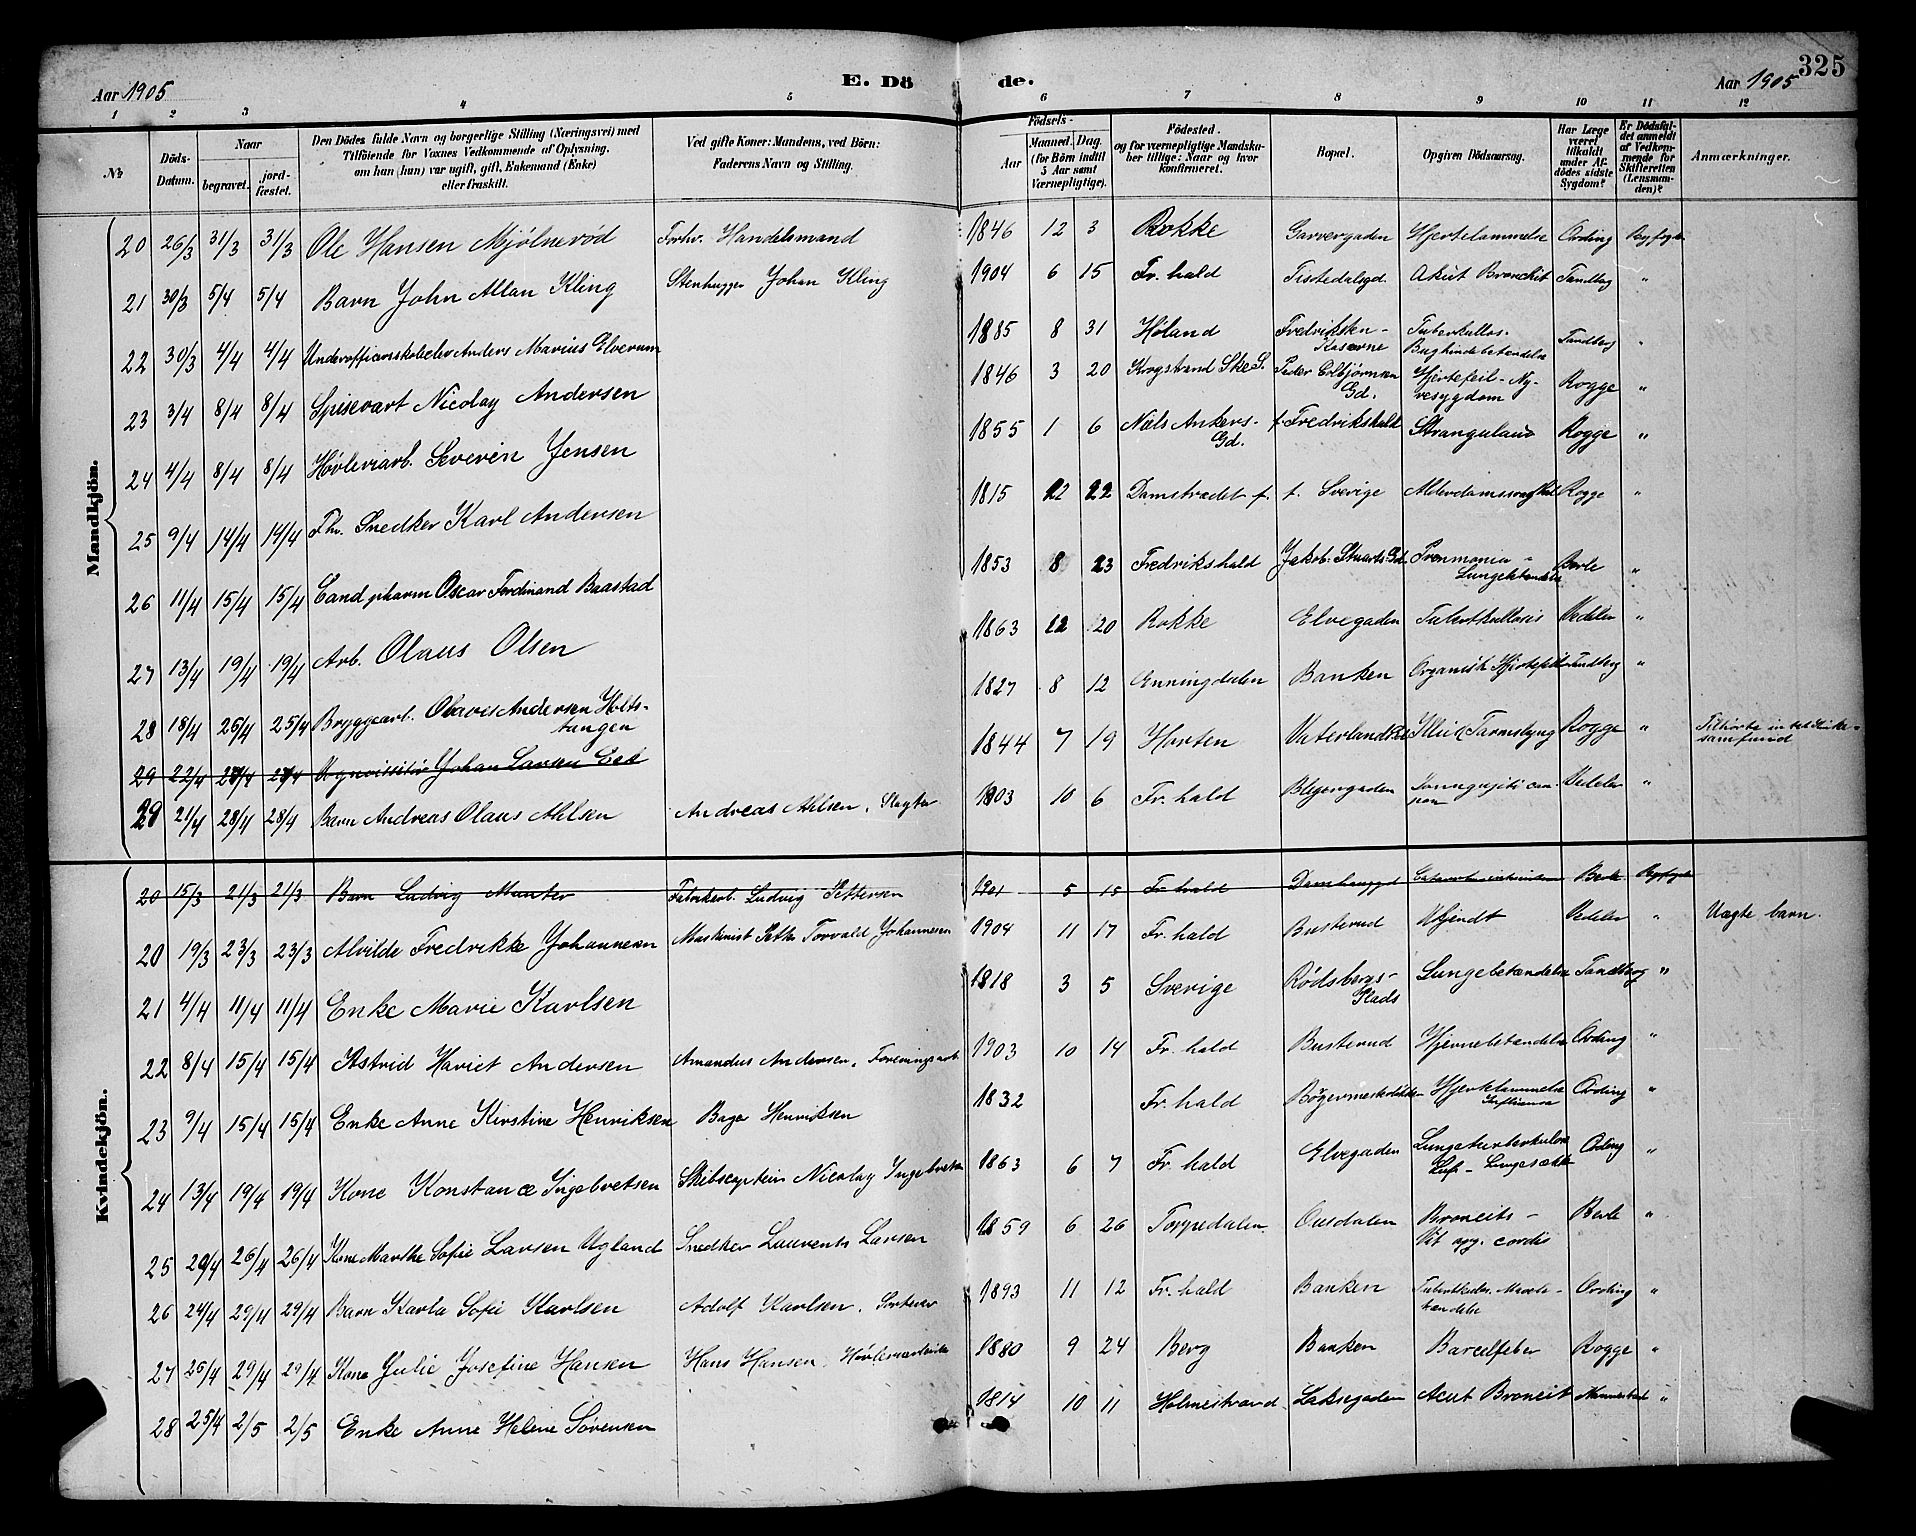 325
Aar 1905
E. Dö
de.
Aar 1905
1 2 3 4 5 6 7 8 9 10 11 12
No
Döds-
Datum.
Naar
begravet.
jord-
fæstet.
Den Dödes fulde Navn og borgerlige Stilling (Næringsvei) med
Tilföiende for Voxnes Vedkommende af Oplysning,
om han (hun) var ugift, gift, Enkemand (Enke)
eller fraskilt.
Ved gifte Koner: Mandens, ved Börn:
Faderens Navn og Stilling.
Födsels-
Aar
Maaned. Dag.
(for Börn indtil
5 Aar samt
Værnepligtige).
Födested.
og for værnepligtige Mandska-
ber tillige: Naar og hvor
konfirmeret.
Bopæl.
Opgiven Dödsaarsag.
Har Læge
været
tilkaldt
under Af-
dödes sidste
Sygdom?
Er Dödsfal-
det anmeldt
af Vedkom-
mende for
Skifteretten
(Lensman-
den)?
Anmærkninger.
Mandkjön.
20 26/3 31/3 31/3 Ole Hansen Mjølnerød Forhv. Handelsmand 1846 12 3 Rokke Garvergaden Hjertelammelse Ording Byfogd
21 30/3 5/4 5/4 Barn John Allan Kling Stenhugger Johan Kling 1904 6 15 Fr. hald Tistedalsgd. Akut Bronchit Tandberg "
22 30/3 4/4 4/4 Underofficerskoleelev Anders Marius Elverum 1885 8 31 Høland Fredriksten - Kaserne Tuberkuløs. Bughindebetændelse Tandberg "
23 3/4 8/4 8/4 Spisevært Nicolay Andersen 1846 3 20 Krogstrand Peder Colbjørnsen Gd. Hjertefeil - Ny- resygdom Rogge "
24 4/4 8/4 8/4 Høvleriarb. Severin Jensen 1855 1 6 Niels Ankers- Gd. f. Fredrikshald Rogge "
25 9/4 14/4 14/4 Fhv. Snedker Karl Andersen 1815 12 22 Damstrædet f. f. Sverige Rogge "
26 11/4 15/4 15/4 Cand. pharm Oscar Ferdinand Baastad 1853 8 23 Fredrikshald Jakob Stuarts Gd. Lungebetændelse Berle "
27 13/4 19/4 19/4 Arb. Olaus Olsen 1863 12 20 Rokke Elvegaden Tuberkulosis Vedeler "
28 18/4 26/4 25/4 Bryggearb. Olaves Andersen Holts- tangen 1827 8 12 Enningdalen Banken Organisk Hjertefeil Tandberg "
29 22/4 27/4 27/4 Johan Larsen 1844 7 19 Horten Tarmslyng Rogge " samfund
29 21/4 28/4 28/4 Barn Andreas Olaus Ahlsen Andreas Ahlsen, Slagter 1903 10 6 Fr. hald Vedeler "
Kvindekjön.
20 15/3 21/3 21/3 Barn Ludvig Fabrikarb. Ludvig Pettersen 1901 5 15 Fr. hald Berle Byfogd
20 19/3 23/3 23/3 Alvilde Fredrikke Johannesen Maskinist Petter Torvald Johannesen 1904 11 17 Fr. hald Busterud Ukjendt Vedeler " Uægte barn.
21 4/4 11/4 11/4 Enke Marie Karlsen 1818 3 5 Sverige Rødsbergs- Plads Lungebetændelse Tandberg "
22 8/4 15/4 15/4 Astrid Hariet Andersen Amandus Andersen, Foreningsarb. 1903 10 14 Fr. hald Busterud Hjernebetændelse Ording "
23 9/4 15/4 15/4 Enke Anne Kirstine Henriksen Bager Henriksen 1832 Fr. hald Hjertelammelse Influensa Ording "
24 13/4 19/4 19/4 Kone Konstance Ingebretsen Skibscaptein Nicolay Ingebretsen 1863 6 7 Fr. hald Elvegaden Lungetuberkulose Ording "
25 20/4 26/4 26/4 Kone Marthe Sofie Larsen Ugland Snedker Laurents Larsen 1859 6 26 Torpedalen Ousdalen Broncits - Vit. org. cordis Berle "
26 24/4 29/4 29/4 Barn Karla Sofie Karlsen Adolf Karlsen, Sorterer 1893 11 12 Fr. hald Banken Ording "
27 26/4 29/4 29/4 Kone Julie Josefine Hansen Hans Hansen, Høvleriarbeider 1880 9 24 Berg Banken Barselfeber Rogge "
28 25/4 2/5 2/5 Enke Anne Helene Sørensen 1814 10 11 Holmestrand Laksegaden Acut Broncit "